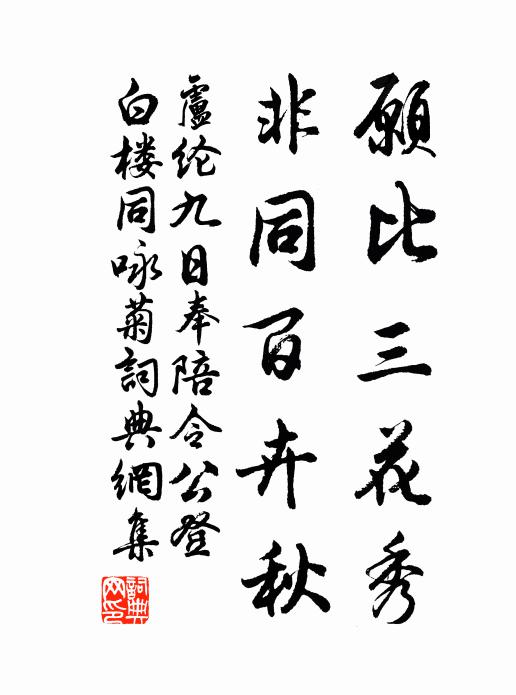 願比三花秀
非同百卉秋
盧纶九日奉陪令公登
白楼同咏菊詞典網集
詞典网印